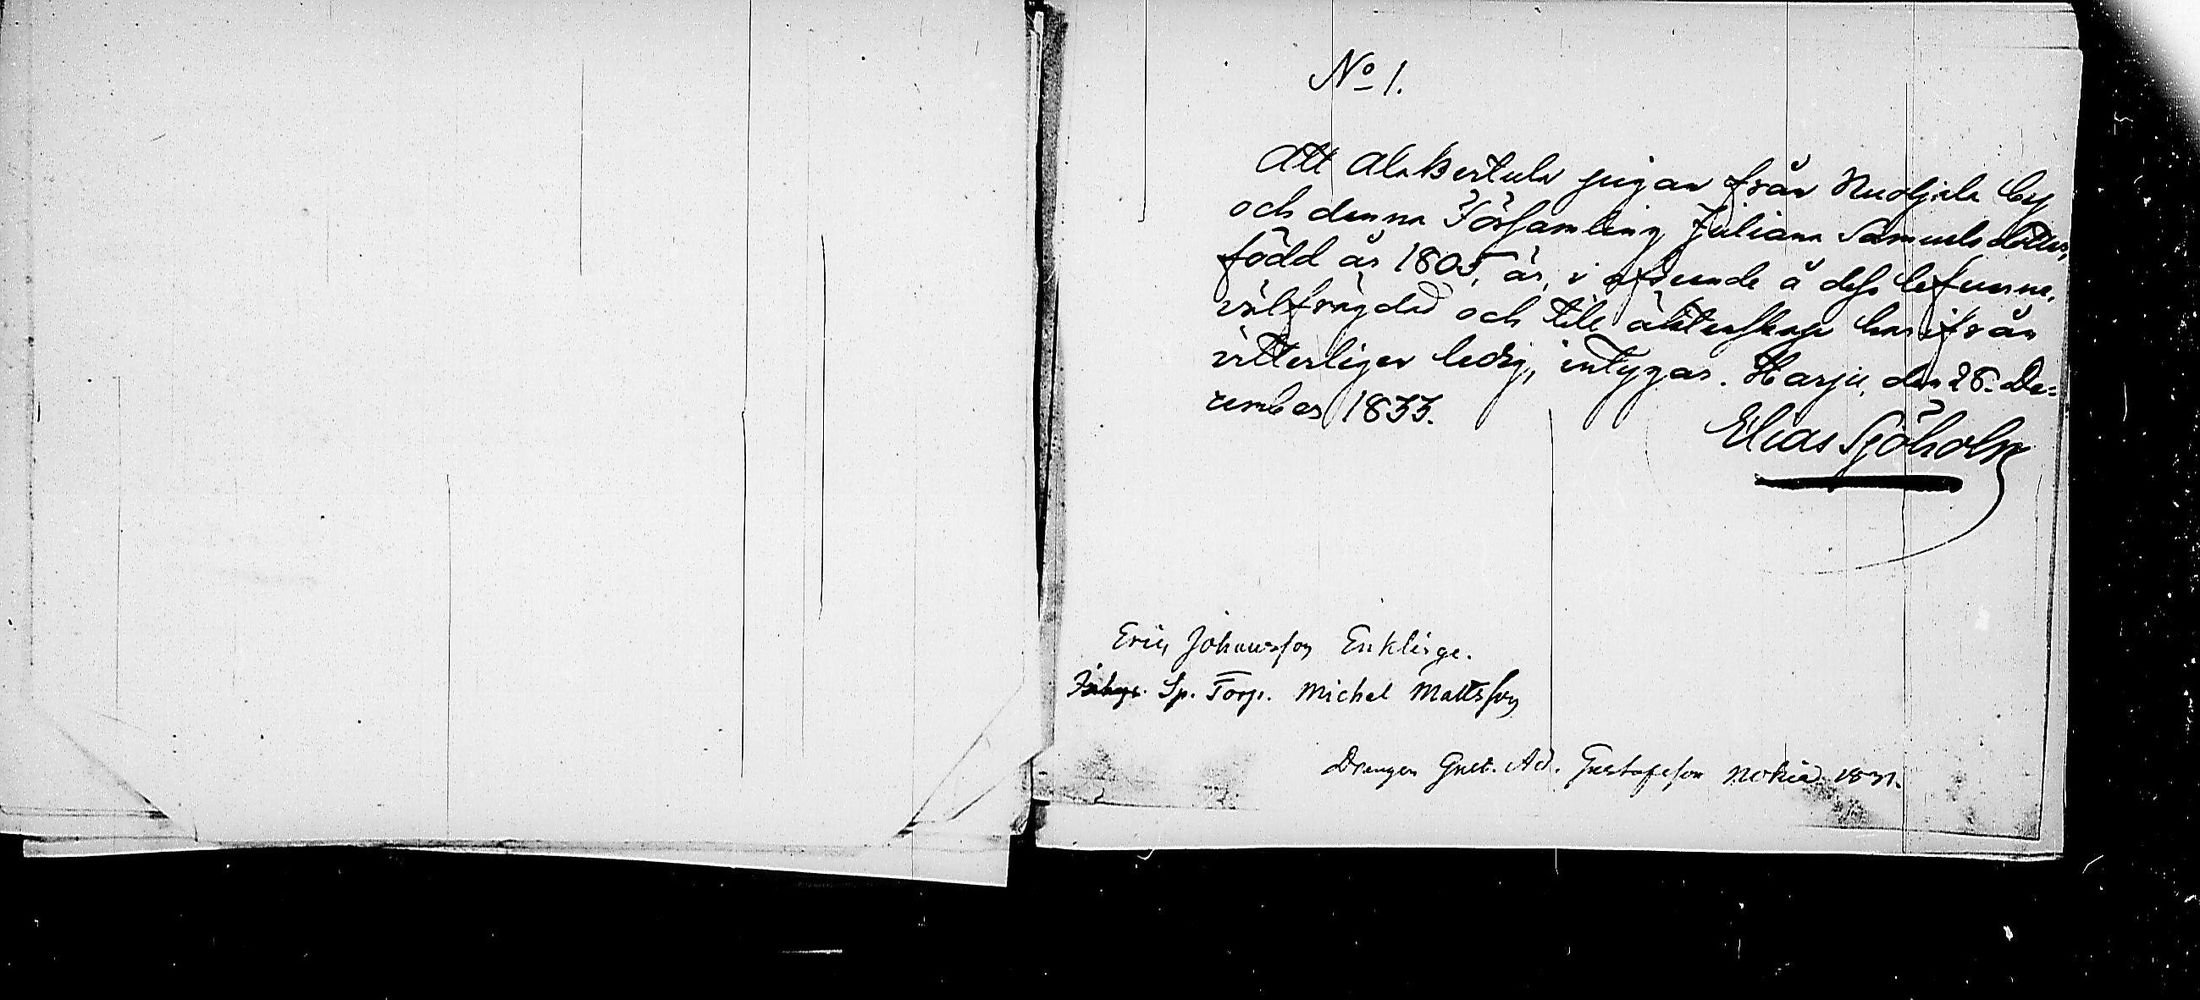 No 1.
Att Ala Bertula pigan från Nuoljala by
och denna Församling Juliana Samuelsdotter,
född år 1805, är, i afseende å dess lefverne,
välfrägdad och till äktenskap härifrån
vitterligen ledig, intygas. Harju, den 28. De-
cember 1833.
Elias Sjöholm
Eric Johansson Enklinge.
Sp. Torp. Michel Mattsson
Drengen Gust. Ad. Gustafsson Nokia 1831.